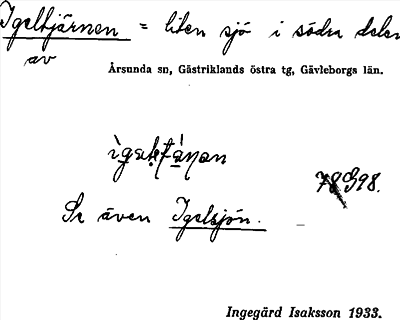 Igeltjärnen = liten sjö i södra delen
av
Årsunda sn, Gästriklands östra tg, Gävleborgs län.
Se även Igelsjön.
Ingegärd Isaksson 1933.